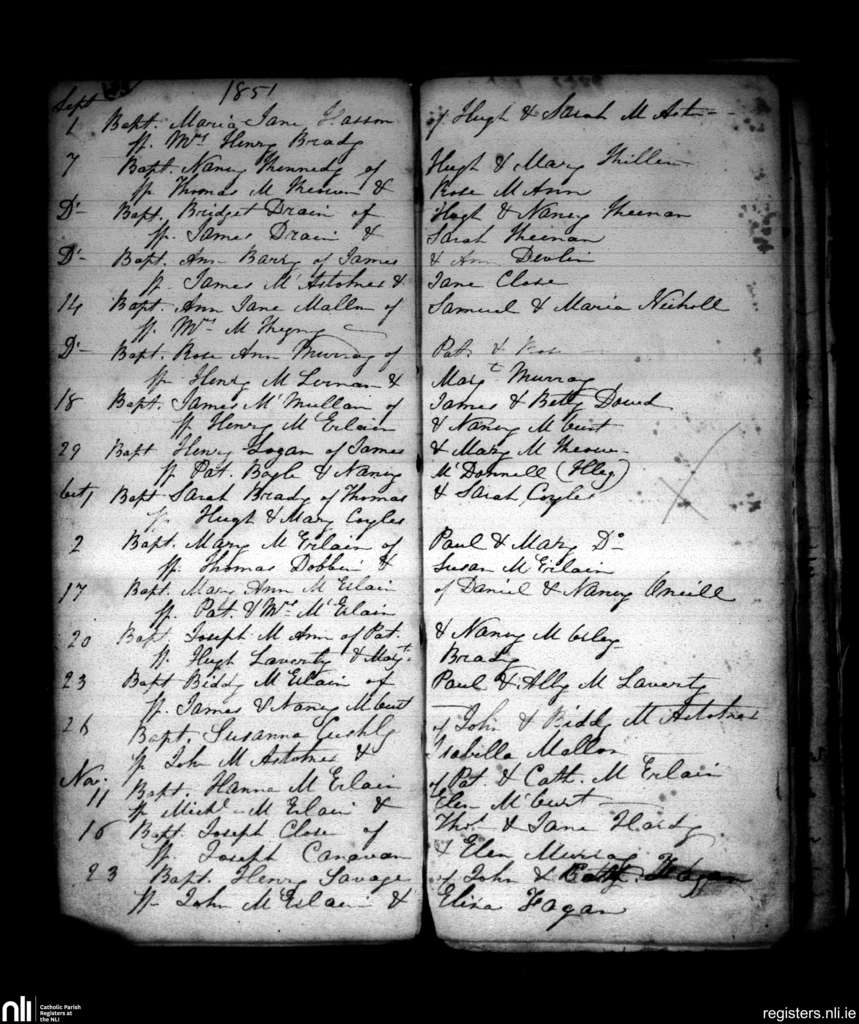 1851
Sept
1 Bapt. Maria Jane Hasson of Hugh & Sarah M
Sp. Mrs Henry Brady
7 Bapt. Nancy Kennedy of Hugh & Mary
Sp. Thomas M & Rose M Ann
Do Bapt. Bridget Drain of Hugh & Nancy Keenan
Sp. James Drain & Sarah Keenan
Do Bapt. Ann Barry of James & Ann Devlin
Sp. James McAtotner & Jane Close
14 Bapt. Ann Jane Mallon of Samuel & Maria Nicholl
Sp. Mrs M
Do Bapt. Rose Ann Murray of Pat. & Rose
Sp. Henry M Lernan & Margt Murray
18 Bapt. James McMullan of James & Betty Dowd
Sp. Henry M Erlain & Nancy M Curt
29 Bapt Henry Logan of James & Mary M
Sp Pat. Boyle & Nancy McDonnell (Illeg)
Oct 1 Bapt Sarah Brady of Thomas & Sarah Coyles
Sp Hugh & Mary Coyles
2 Bapt. Mary M Erlain of Paul & Mary Do
Sp. Thomas Dobbin & Susan M Erlain
17 Bapt. Mary Ann M Erlain of Daniel & Nancy Oneill
Sp. Pat. & Mrs McErlain
20 Bapt. Joseph M Ann of Pat. & Nancy M
Sp. Hugh Laverty & Mary Brady
23 Bapt Biddy M Erlain of Paul & Ally M Laverty
Sp. James & Nancy M Curt
26 Bapt. Susanna of John & Biddy M Atotner
Sp John M Atotner & Isabella Mallon
Nov.
11 Bapt. Hanna M Erlain of Pat. & Cath. M Erlain
Sp Michl M Erlain & Elen McCurt
16 Bapt. Joseph Close of Thos & Jane Hardy
Sp. Joseph Canavan & Elen Murray
23 Bapt. Henry Savage of John & Cath. Fagan
Sp. John McErlain & Eliza Fagan
nli
Catholic Parish
Registers at
the NLI
registers.nli.ie